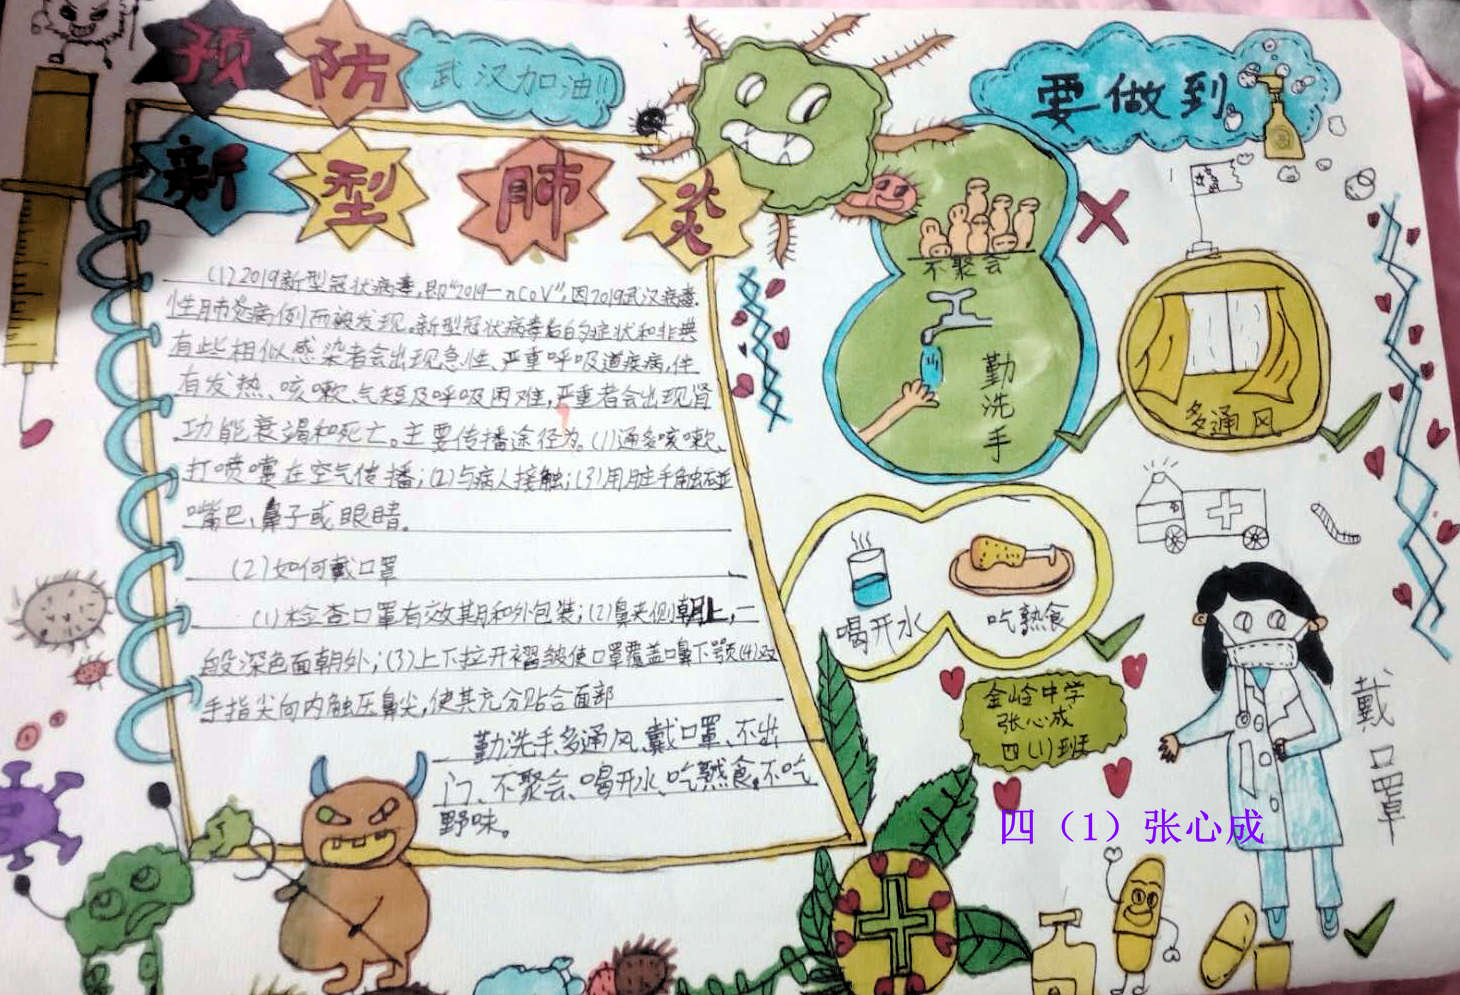 预防
武汉加油!!
新型肺炎
(1)2019新型冠状病毒,即“2019-nCoV”,因2019武汉病毒
性肺炎病例而被发现。新型冠状病毒后的症状和非典
有些相似感染者会出现急性、严重呼吸道疾病,伴
有发热、咳嗽、气短及呼吸困难,严重者会出现肾
功能衰竭和死亡。主要传播途径为。(1)通多咳嗽、
打喷嚏在空气传播;(2)与病人接触;(3)用脏手触碰
嘴巴、鼻子或眼睛。
(2)如何戴口罩
(1)检查口罩有效期和外包装;(2)鼻夹侧朝上,一
般深色面朝外;(3)上下拉开褶皱使口罩覆盖口鼻下颚(4)双
手指尖向内触压鼻尖,使其充分贴合面部
勤洗手、多通风、戴口罩、不出
门、不聚会、喝开水、吃熟食。不吃
野味。
要做到
不聚会
勤洗手
多通风
喝开水
吃熟食
金岭中学
张心成
四(1)班
戴口罩
四（1）张心成